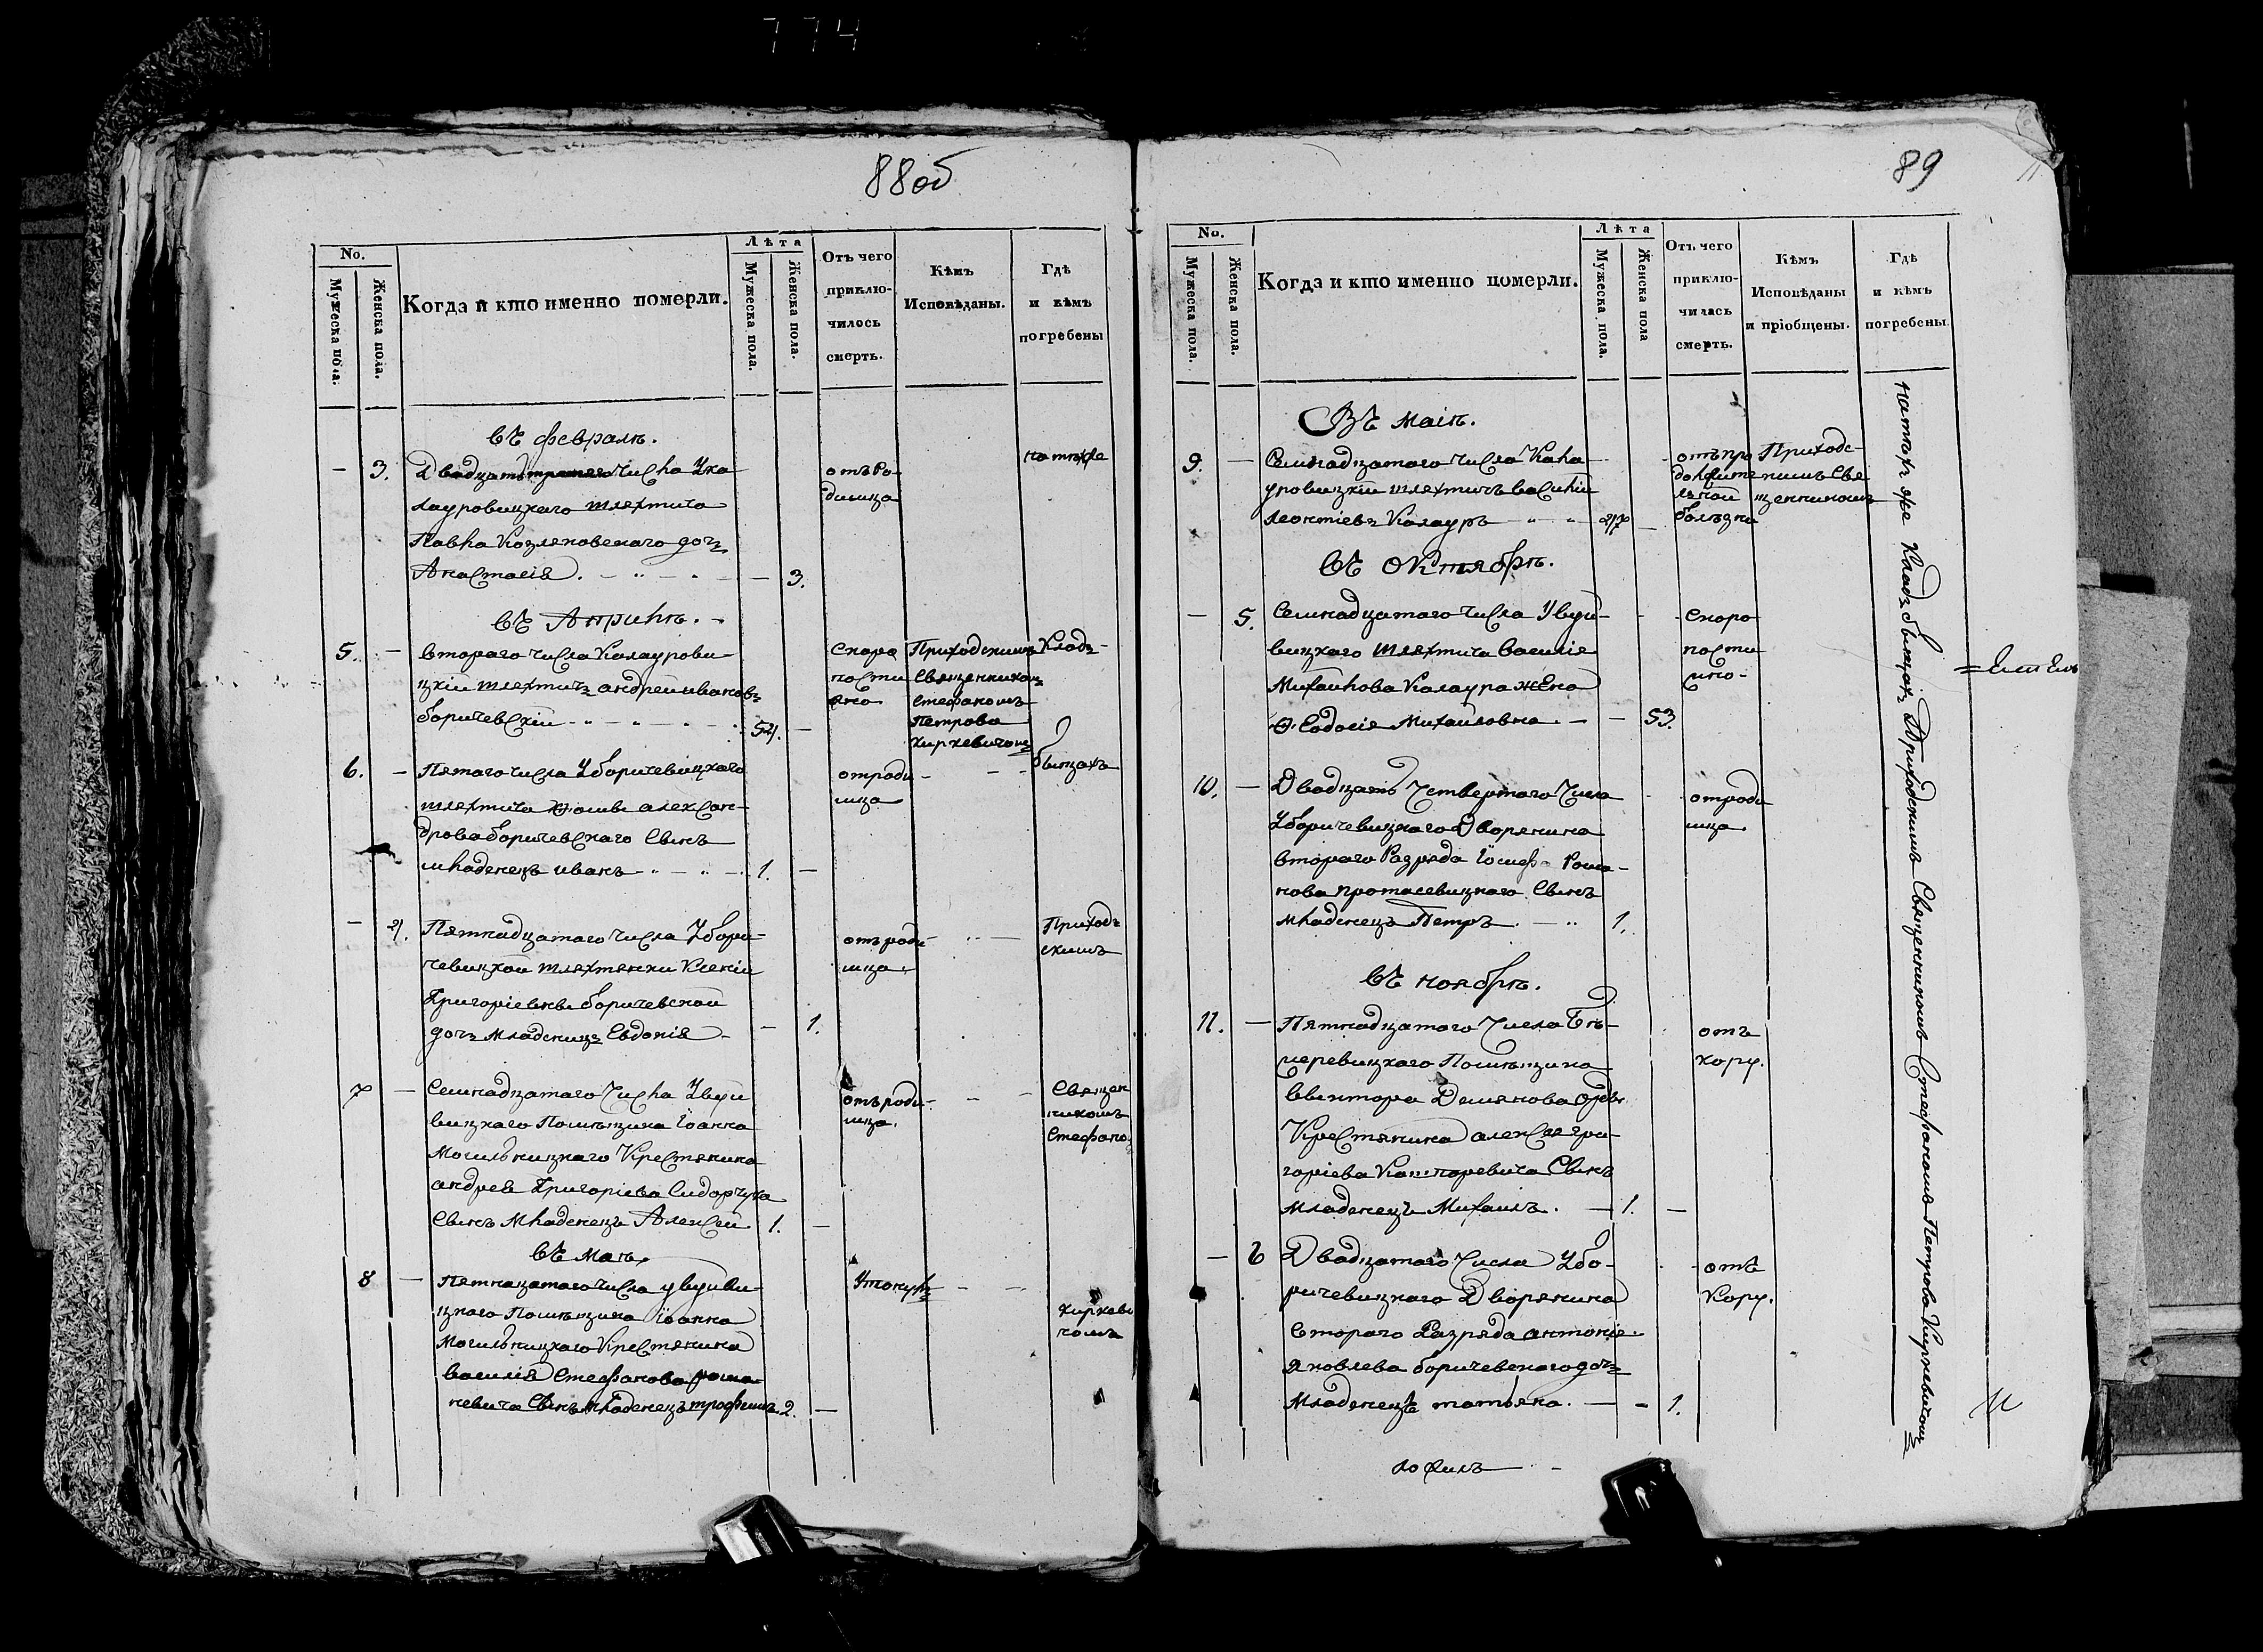 774
88об
No.
Мужеска пола.
Женска пола.
Когда и кто именно померли.
Лѣта
Мужеска пола.
Женска пола.
Отъ чего
приклю-
чилось
смерть.
Кѣмъ
Исповѣданы.
Гдѣ
и кѣмъ
погребены
въ февралѣ.
— 3. Двадцать третяго числа Ука
лауровицкаго шляхтича
Павла Козляковскаго дочь
Анастасія. — 3.
отъ Ро-
димца
на тѣхже
въ Априлѣ.
5. — втораго числа Калаурови-
цкій шляхтичъ андрей ивановъ
боричевскій 54. —
Скоро
пости
жно
Приходскимъ
Священникомъ
Стефаномъ
Петрова
Киркевичомъ
Кладъ-
бищахъ
6. — Пятаго числа Уборичевицкаго
шляхтича Фомы алексан-
дрова боричевскаго Сынъ
младенецъ иванъ 1. —
отроди
мца
— 4. Пятнадцатаго числа Убори-
чевицкой шляхтянки Ксеніи
Григоріевны боричевской
дочъ младеницъ Евдокія — 1.
отъ роди-
мца.
Приходъ
скимъ
7 — Семнадцатаго Числа Увуи
вицкаго Помѣщика Іоанна
Могильницкаго Крестянина
андрея Григоріева Сидорчука
Сынъ Младенецъ Алексей 1. —
отъ роди-
мца.
Священ
никомъ
Стефано
въ Маѣ
8 — Пятнацатаго числа увуиви-
цкаго Помѣщика Іоанна
Могильницкаго Крестянина
василія Стефанова рома-
невича Сынъ младенецъ трофимъ 2. —
Утонулъ
Киркеви
чомъ
89
No.
Мужеска пола.
Женска пола.
Когда и кто именно померли.
Лѣта
Мужеска пола.
Женска пола
Отъ чего
приклю-
чилась
смерть.
Кѣмъ
Исповѣданы
и пріобщены.
Гдѣ
и кѣмъ
погребены.
Въ маіѣ.
9. — Семнадцатаго числа Кала
уровицкій шляхтичъ василій
Леонтіевъ Калауръ 47 —
отъ про
должите
льной
болѣзни
Приходс-
кимъ Свя
щенникомъ
въ Октябрѣ.
— 5. Семнадцатаго числа Увуй-
вицкаго шляхтича василія
Михайлова Калаура жена
Ѳеодосія Михайловна. — 53.
Скоро
пости
жно-
10. — Двадцать Четвертаго Числа
Уборичевицкаго Дворянина
втораго Разряда Іосиф Рома-
нова протасевицкаго Сынъ
младенецъ Петръ. 1.
отроди
мца
въ ноябрѣ.
11. — Пятнадцатаго Числа
Помѣщика
Виктора Демянова
Крестянина алексея гри-
горіева Сынъ
младенецъ Михаилъ. — 1. —
отъ
кору.
— 6 Двадцатаго Числа Убо-
ричевицкаго Дворянина
втораго Разряда антонія
Яковлева боричевскаго дочъ
Младенецъ татьяна. — 1.
отъ
Кору.
на тѣхже Кладъбищахъ Приходскимъ Священникомъ Стефаномъ Петрова Киркевичомъ